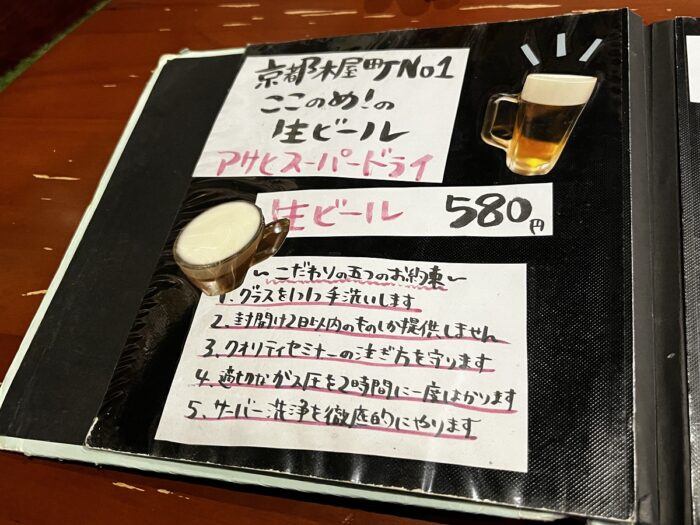 京都木屋町No1
ここのめ!の
生ビール
アサヒスーパードライ
生ビール 580円
～こだわりの五つのお約束～
1、グラスを1つ1つ手洗いします
2、封開け2日以内のものしか提供しません
3、クオリティセミナーの注ぎ方を守ります
4、適切なガス圧を2時間に一度はかります
5、サーバー洗浄を徹底的にやります